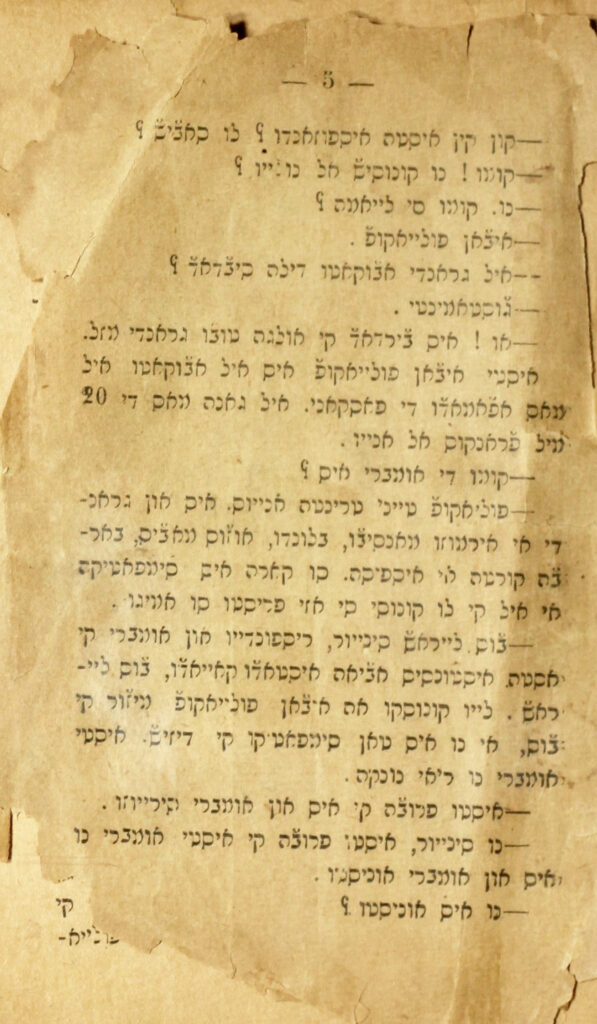 — 5 —
—קון קין איסטה איספוזאנדו? לו סאב׳יש?
—קומו! נו קונוסיש אל נוב׳ייו?
—נו. קומו סי לייאמה?
—איב׳אן פולייאקוף.
—איל גראנדי אב׳וקאטו דילה סיב׳דאד?
—ג׳וסטאמינטי.
—או! איס ב׳ירדאד קי אולגה טובו גראנדי מזל.
איסטי איב׳אן פולייאקוף איס איל אב׳וקאטו איל
מאס אפ׳אמאדו די פאסקאני. איל גאנה מאס די 20
מיל פ׳ראנקוס אל אנייו.
—קומו די אומברי איס?
—פוליאקוף טייני טרינטה אנייוס. איס און גראנ-
די אי אירמוזו מאנסיבו, בלונדו, אוז׳וס מאב׳יס, באר-
בה קורטה אי איספיסה. סו קארה איס סימפאטיקה
אי איל קי לו קונוסי סי אזי פריסטו סו אמיגו.
—ב׳וס לייראש סינייור, ריספונדייו און אומברי קי
אסטה איסטונסיס אב׳יאה איסטאדו קאייאדו, ב׳וס ליי-
ראש. לייו קונוסקו אה איב׳אן פולייאקוף מיז׳ור קי
ב׳וס, אי נו איס טאן סימפאטיקו קי דיזיש. איסטי
אומברי נו ריאי נונקה.
—איסטו פרוב׳ה קי איס און אומברי סיריייוזו.
—נו סינייור, איסטו פרוב׳ה קי איסטי אומברי נו
איס און אומברי אוניסטו.
—נו איס אוניסטו? קי
פולייא-